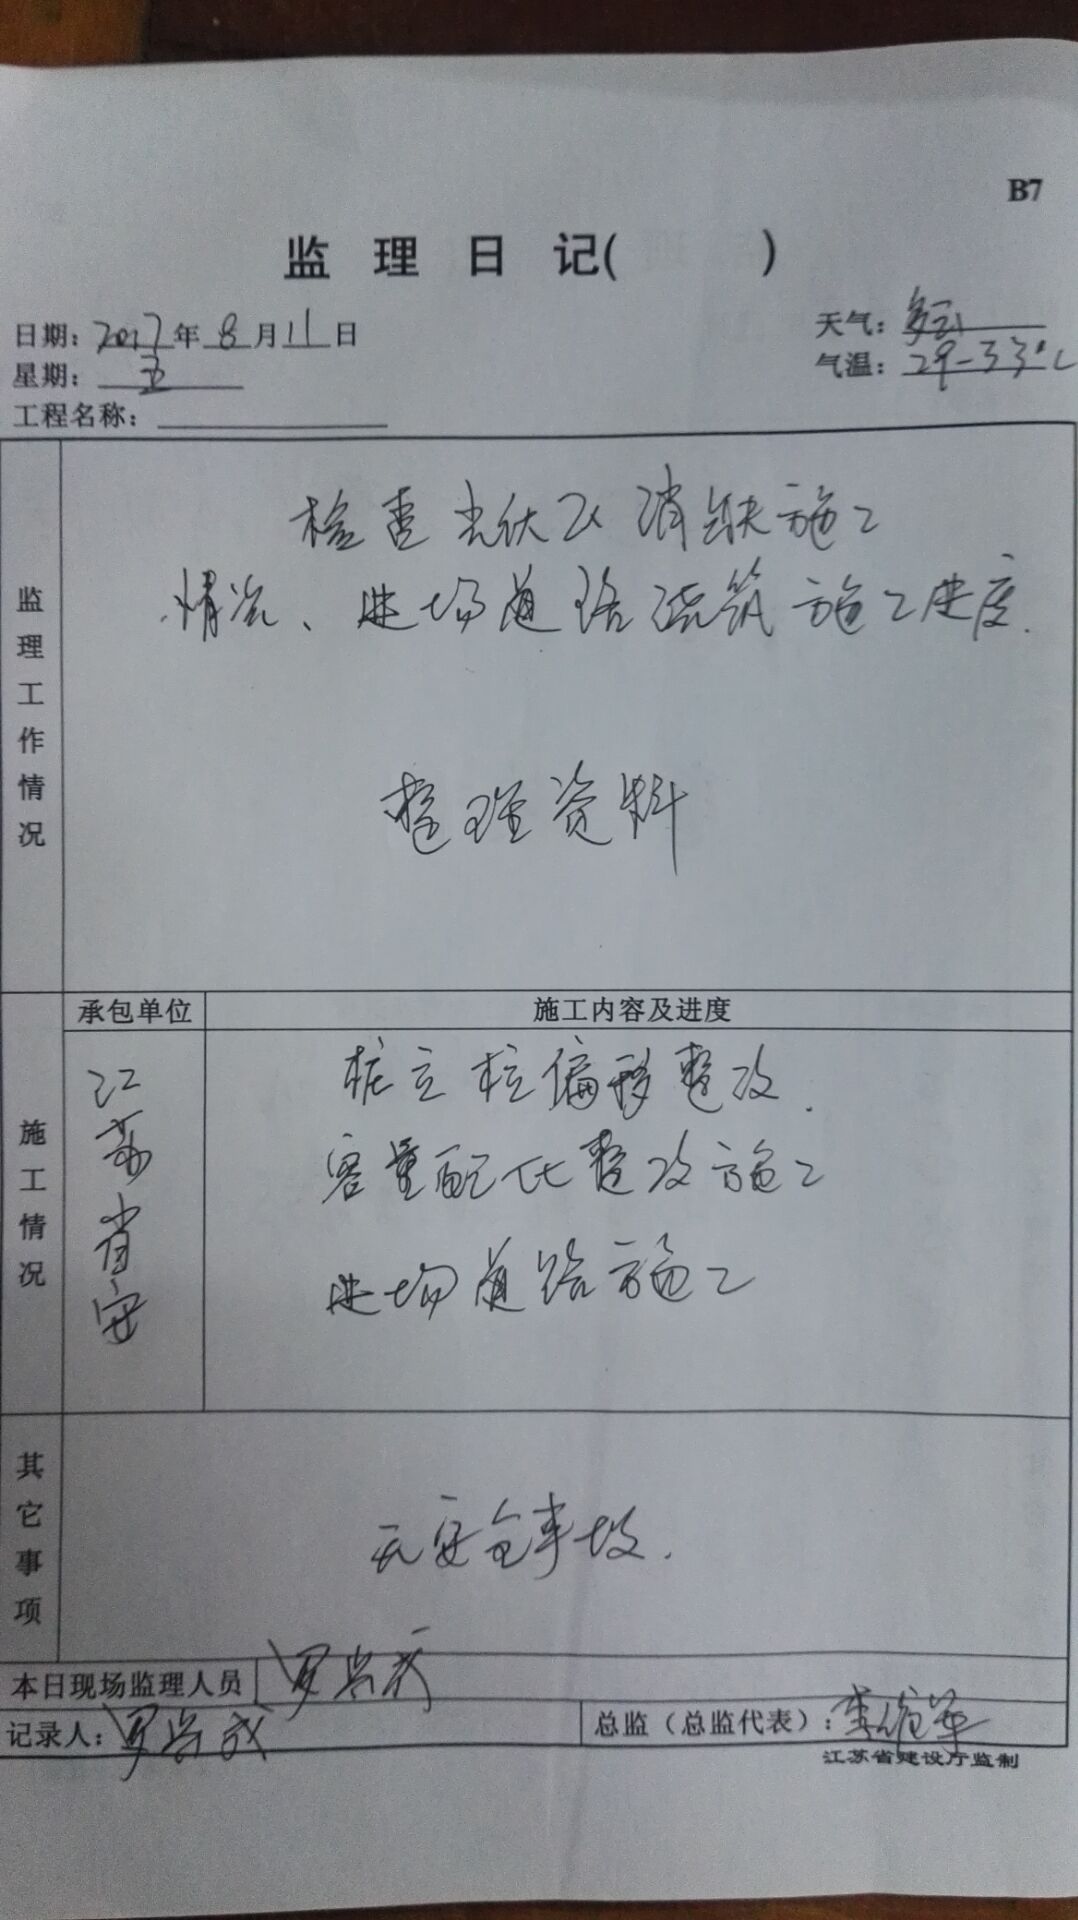 B7
监 理 日 记( )
日期: 2017 年 8 月 11 日
天气: 多云
星期: 五
气温: 29-33℃
工程名称:
监理工作情况
检查光伏区消缺施工
情况、进场道路浇筑施工进度.
整理资料
承包单位 施工内容及进度
施工情况
江苏省安
桩立柱偏移整改.
容量配比整改施工
进场道路施工
其它事项
无安全事故.
本日现场监理人员 罗兴成
记录人: 罗兴成 总监（总监代表）:
江苏省建设厅监制